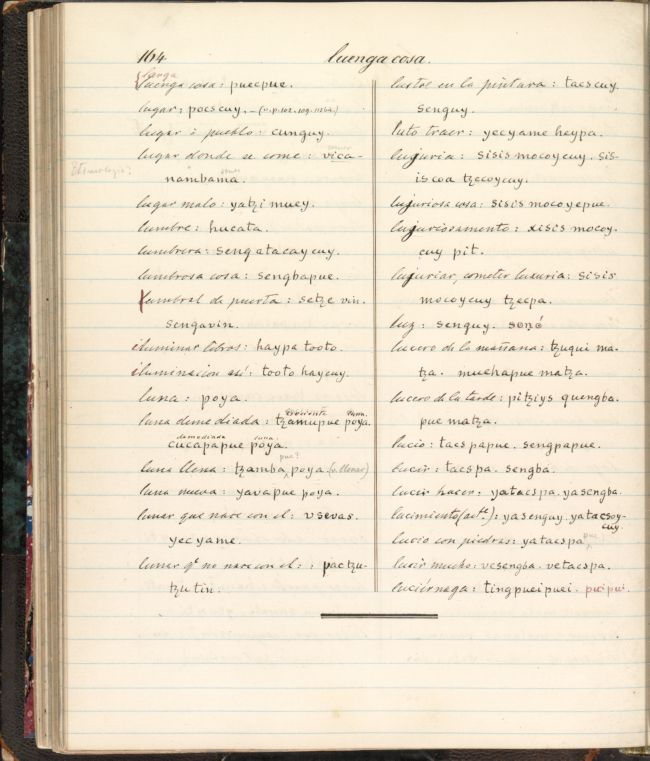 164.
luenga cosa.
larga
luenga cosa: puecpue.
lugar: pocscuy. - (v. p. 102, 109,
lugar ò pueblo: cunguy.
comer
lugar donde se come: vica-
Etimologia?
nambama.
lugar malo: yatzi muey.
lumbre: hucata.
lumbrera: sengatacaycuy.
lumbrosa cosa: sengbapue.
lumbral de puerta: setze vin.
sengavin.
iluminar libros: haypa tooto.
iluminacion así: tooto haycuy.
luna: poya.
creciente luna.
luna demediada: tzamupue poya.
demediada luna.
cucapapue poya.
pue?
luna llena: tzamba, poya. (v. lleno)
luna nueva: yavapue poya.
lunar que nace con el: vsevas.
yecyame.
lunar qe no nace con el: : pactzu-
tzutin.
lustre en la pintura: tacscuy.
senguy.
luto traer: yecyame heypa.
lujuria: sisis mocoycuy. sis-
iscoa tzecoycuy.
lujuriosa cosa: sisis mocoyepue.
lujuriosamente: sisis mocoy.
cuy pit.
lujuriar, cometer luxuria: sisis
mocoycuy tzecpa.
luz: senguy. sonó
lucero de la mañana: tzuqui ma-
tza. muchapue matza.
lucero de la tarde: pitziys quengba.
pue matza.
lucio: tacspapue. sengpapue.
lucir: tacspa. sengba.
lucir hacer: yatacspa. yasengba.
lucimiento (acte.): yasenguy. yatacsoy-
cuy.
lucio con piedras: yatacspa pue
lucir mucho: vcsengba. vctacspa.
luciérnaga: tingpueipuei. puipui.